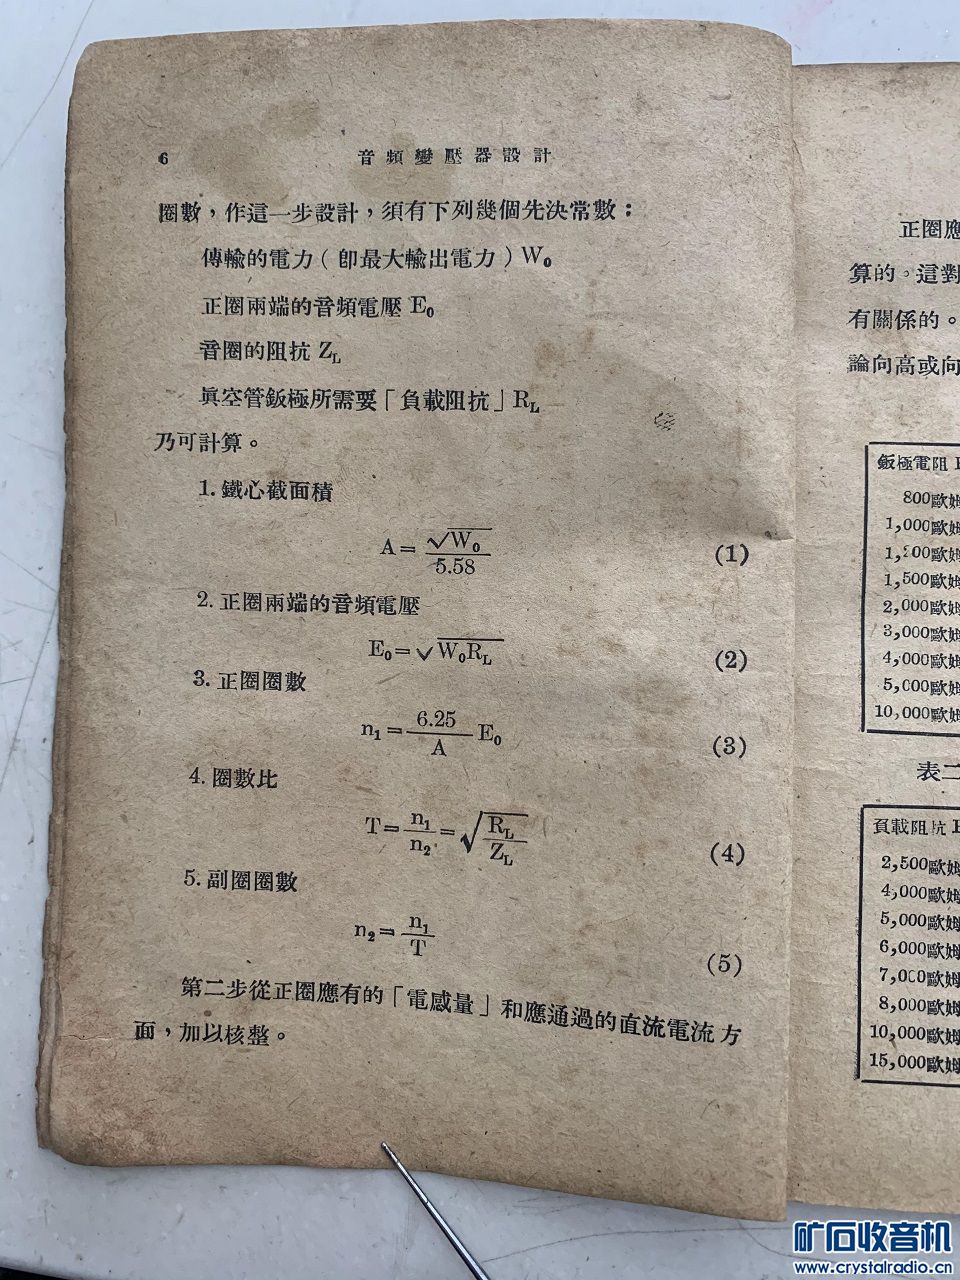 6
音頻變壓器設計
圈數，作這一步設計，須有下列幾個先決常數：
傳輸的電力（卽最大輸出電力）W₀
正圈兩端的音頻電壓 E₀
音圈的阻抗 Z_L
眞空管鈑極所需要「負載阻抗」R_L
乃可計算。
1. 鐵心截面積
A=√W₀/5.58 (1)
2. 正圈兩端的音頻電壓
E₀=√W₀R_L (2)
3. 正圈圈數
n₁=6.25/A E₀ (3)
4. 圈數比
T=n₁/n₂=√R_L/Z_L (4)
5. 副圈圈數
n₂=n₁/T (5)
第二步從正圈應有的「電感量」和應通過的直流電流方
面，加以核整。
正圈應
算的。這對
有關係的。
論向高或向
鈑極電阻
800歐姆
1,000歐姆
1,200歐姆
1,500歐姆
2,000歐姆
3,000歐姆
4,000歐姆
5,000歐姆
10,000歐姆
表二
負載阻抗
2,500歐姆
4,000歐姆
5,000歐姆
6,000歐姆
7,000歐姆
8,000歐姆
10,000歐姆
15,000歐姆
矿石收音机
www.crystalradio.cn